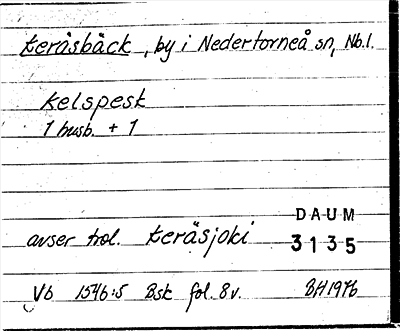 teräsbäck, by i Nedertorneå sn, Nb.l.
kelspesk
1 husb. + 1
avser trol. teräsjoki
DAUM
3135
Vb 1546:5 Bsk fol. 8v. BH 1976